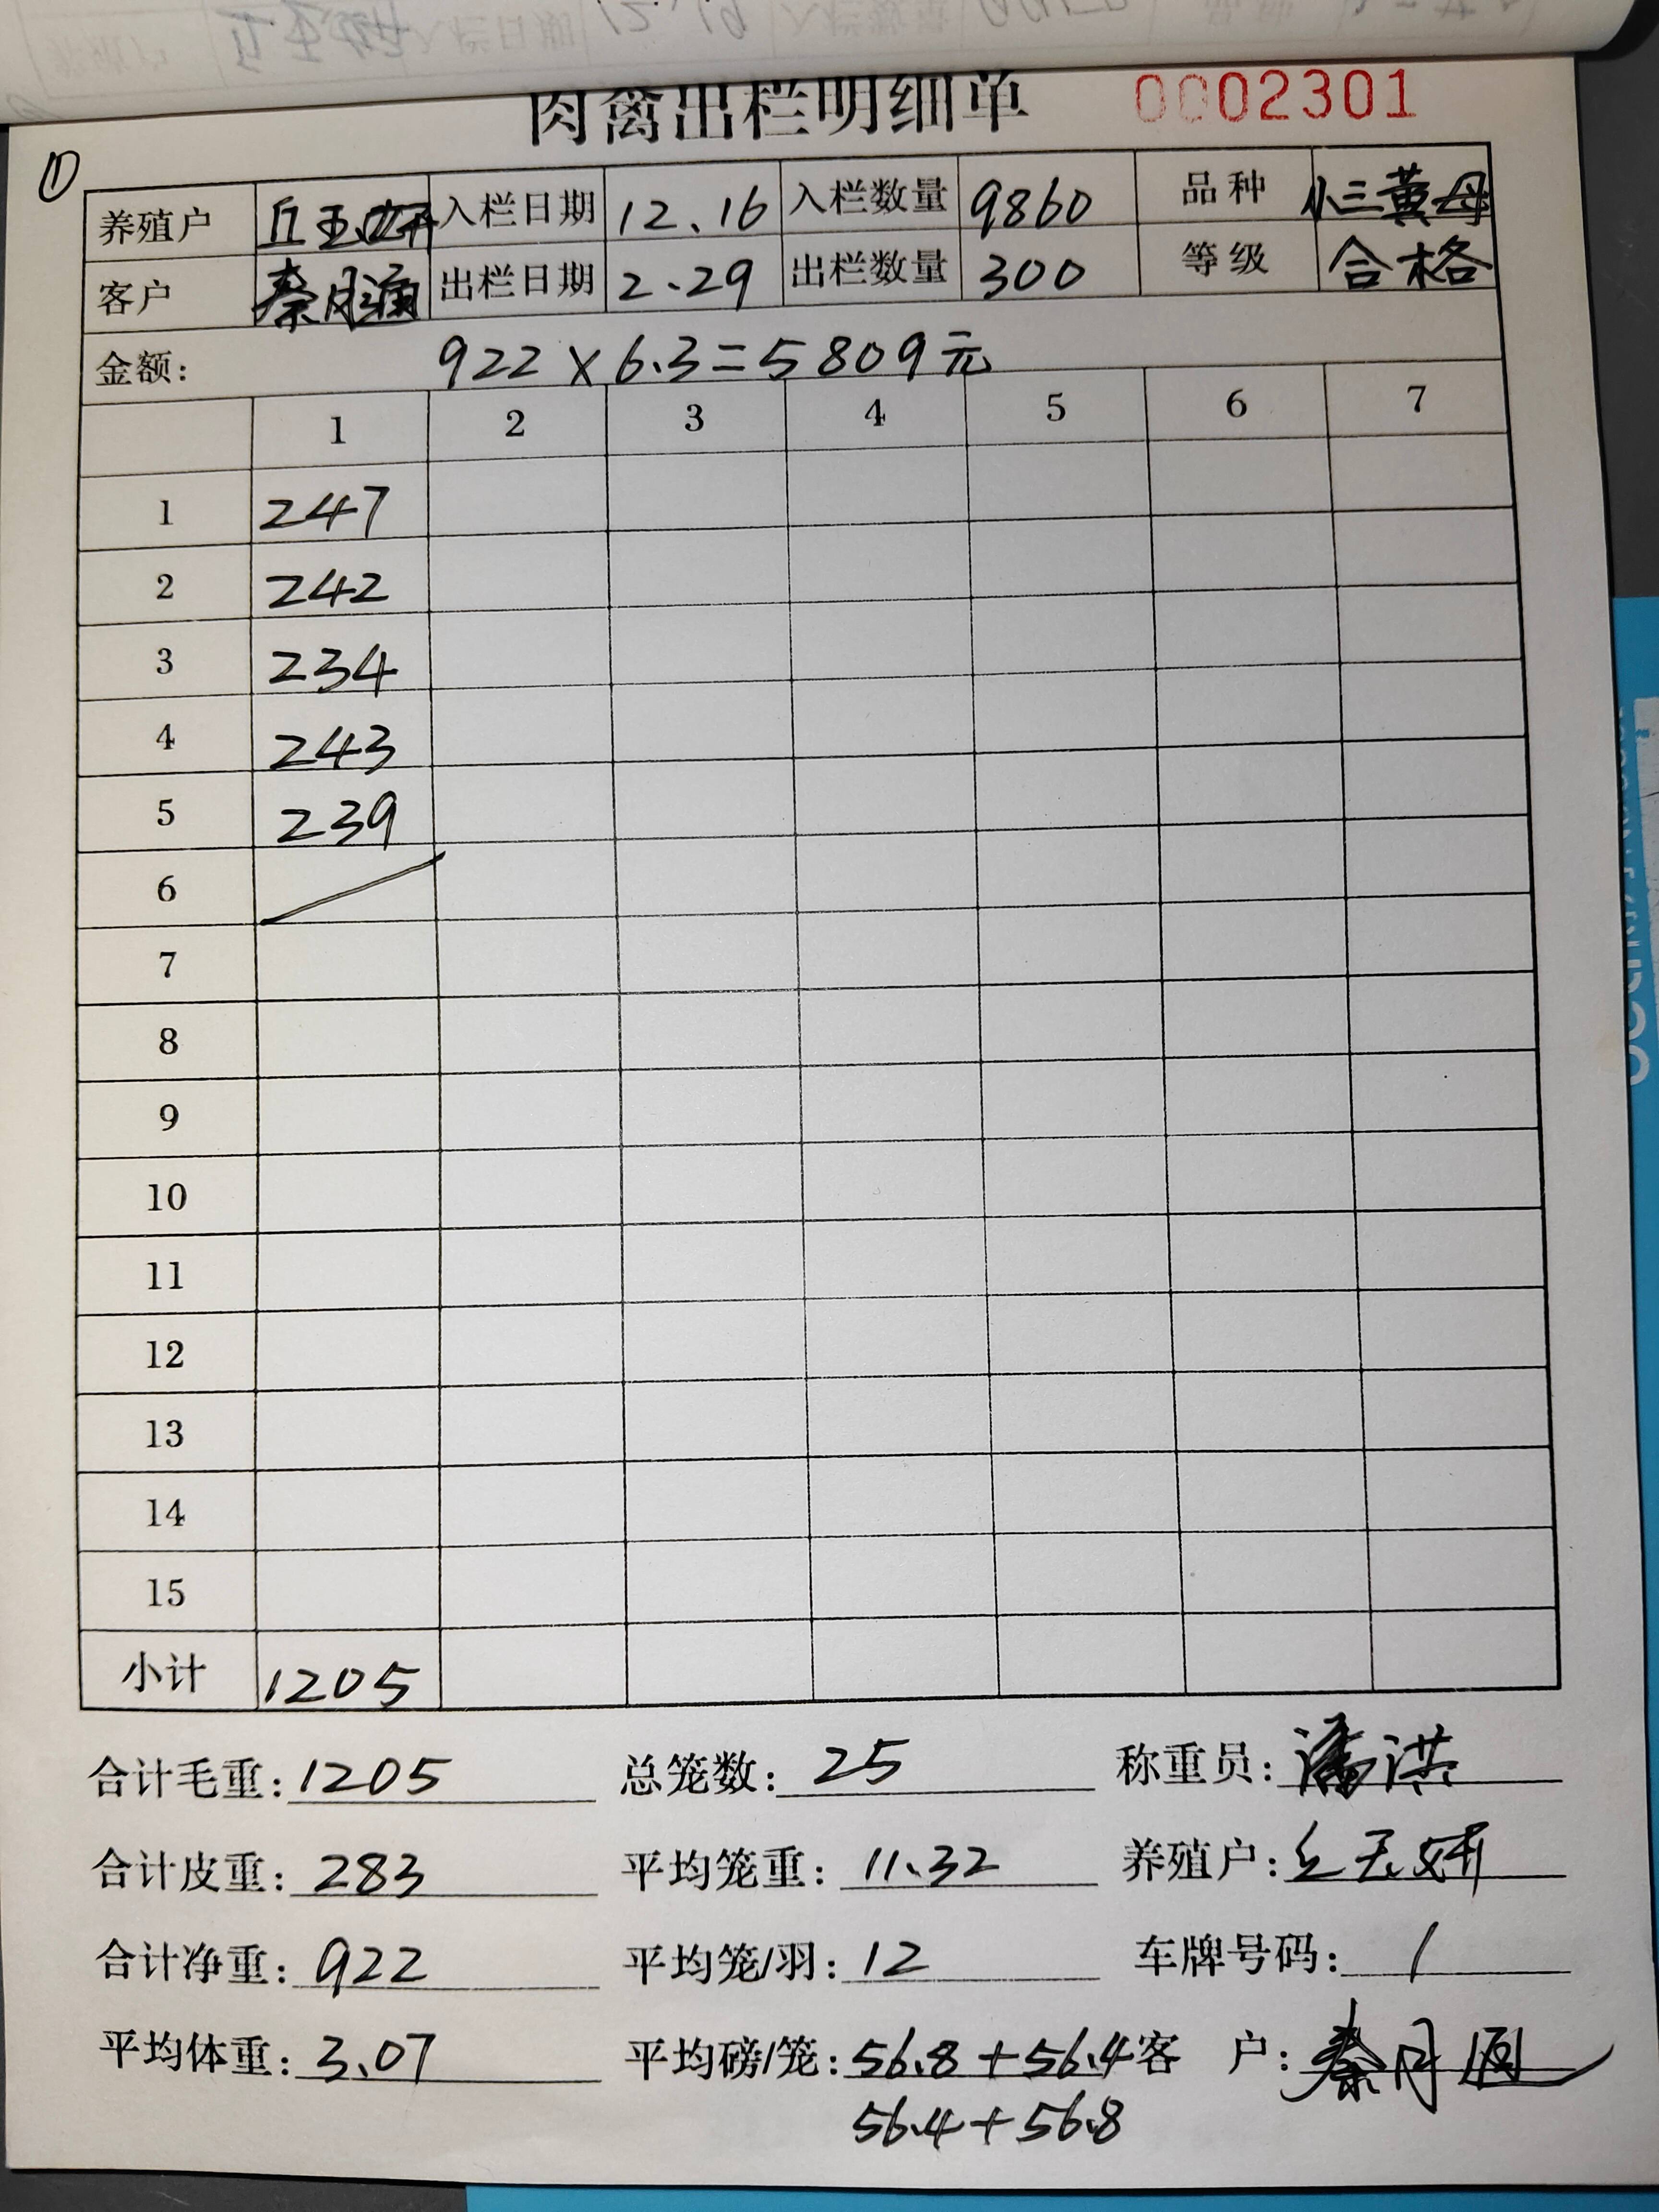 肉禽出栏明细单 0002301
①
养殖户 丘玉妍 入栏日期 12.16 入栏数量 9860 品种 小三黄母
客户 秦月涵 出栏日期 2.29 出栏数量 300 等级 合格
金额: 922×6.3=5809元
1 2 3 4 5 6 7
1 247
2 242
3 234
4 243
5 239
6
7
8
9
10
11
12
13
14
15
小计 1205
合计毛重: 1205 总笼数: 25 称重员: 潘洪
合计皮重: 283 平均笼重: 11.32 养殖户: 丘玉妍
合计净重: 922 平均笼/羽: 12 车牌号码: /
平均体重: 3.07 平均磅/笼: 56.8+56.4 客户: 秦月
56.4+56.8